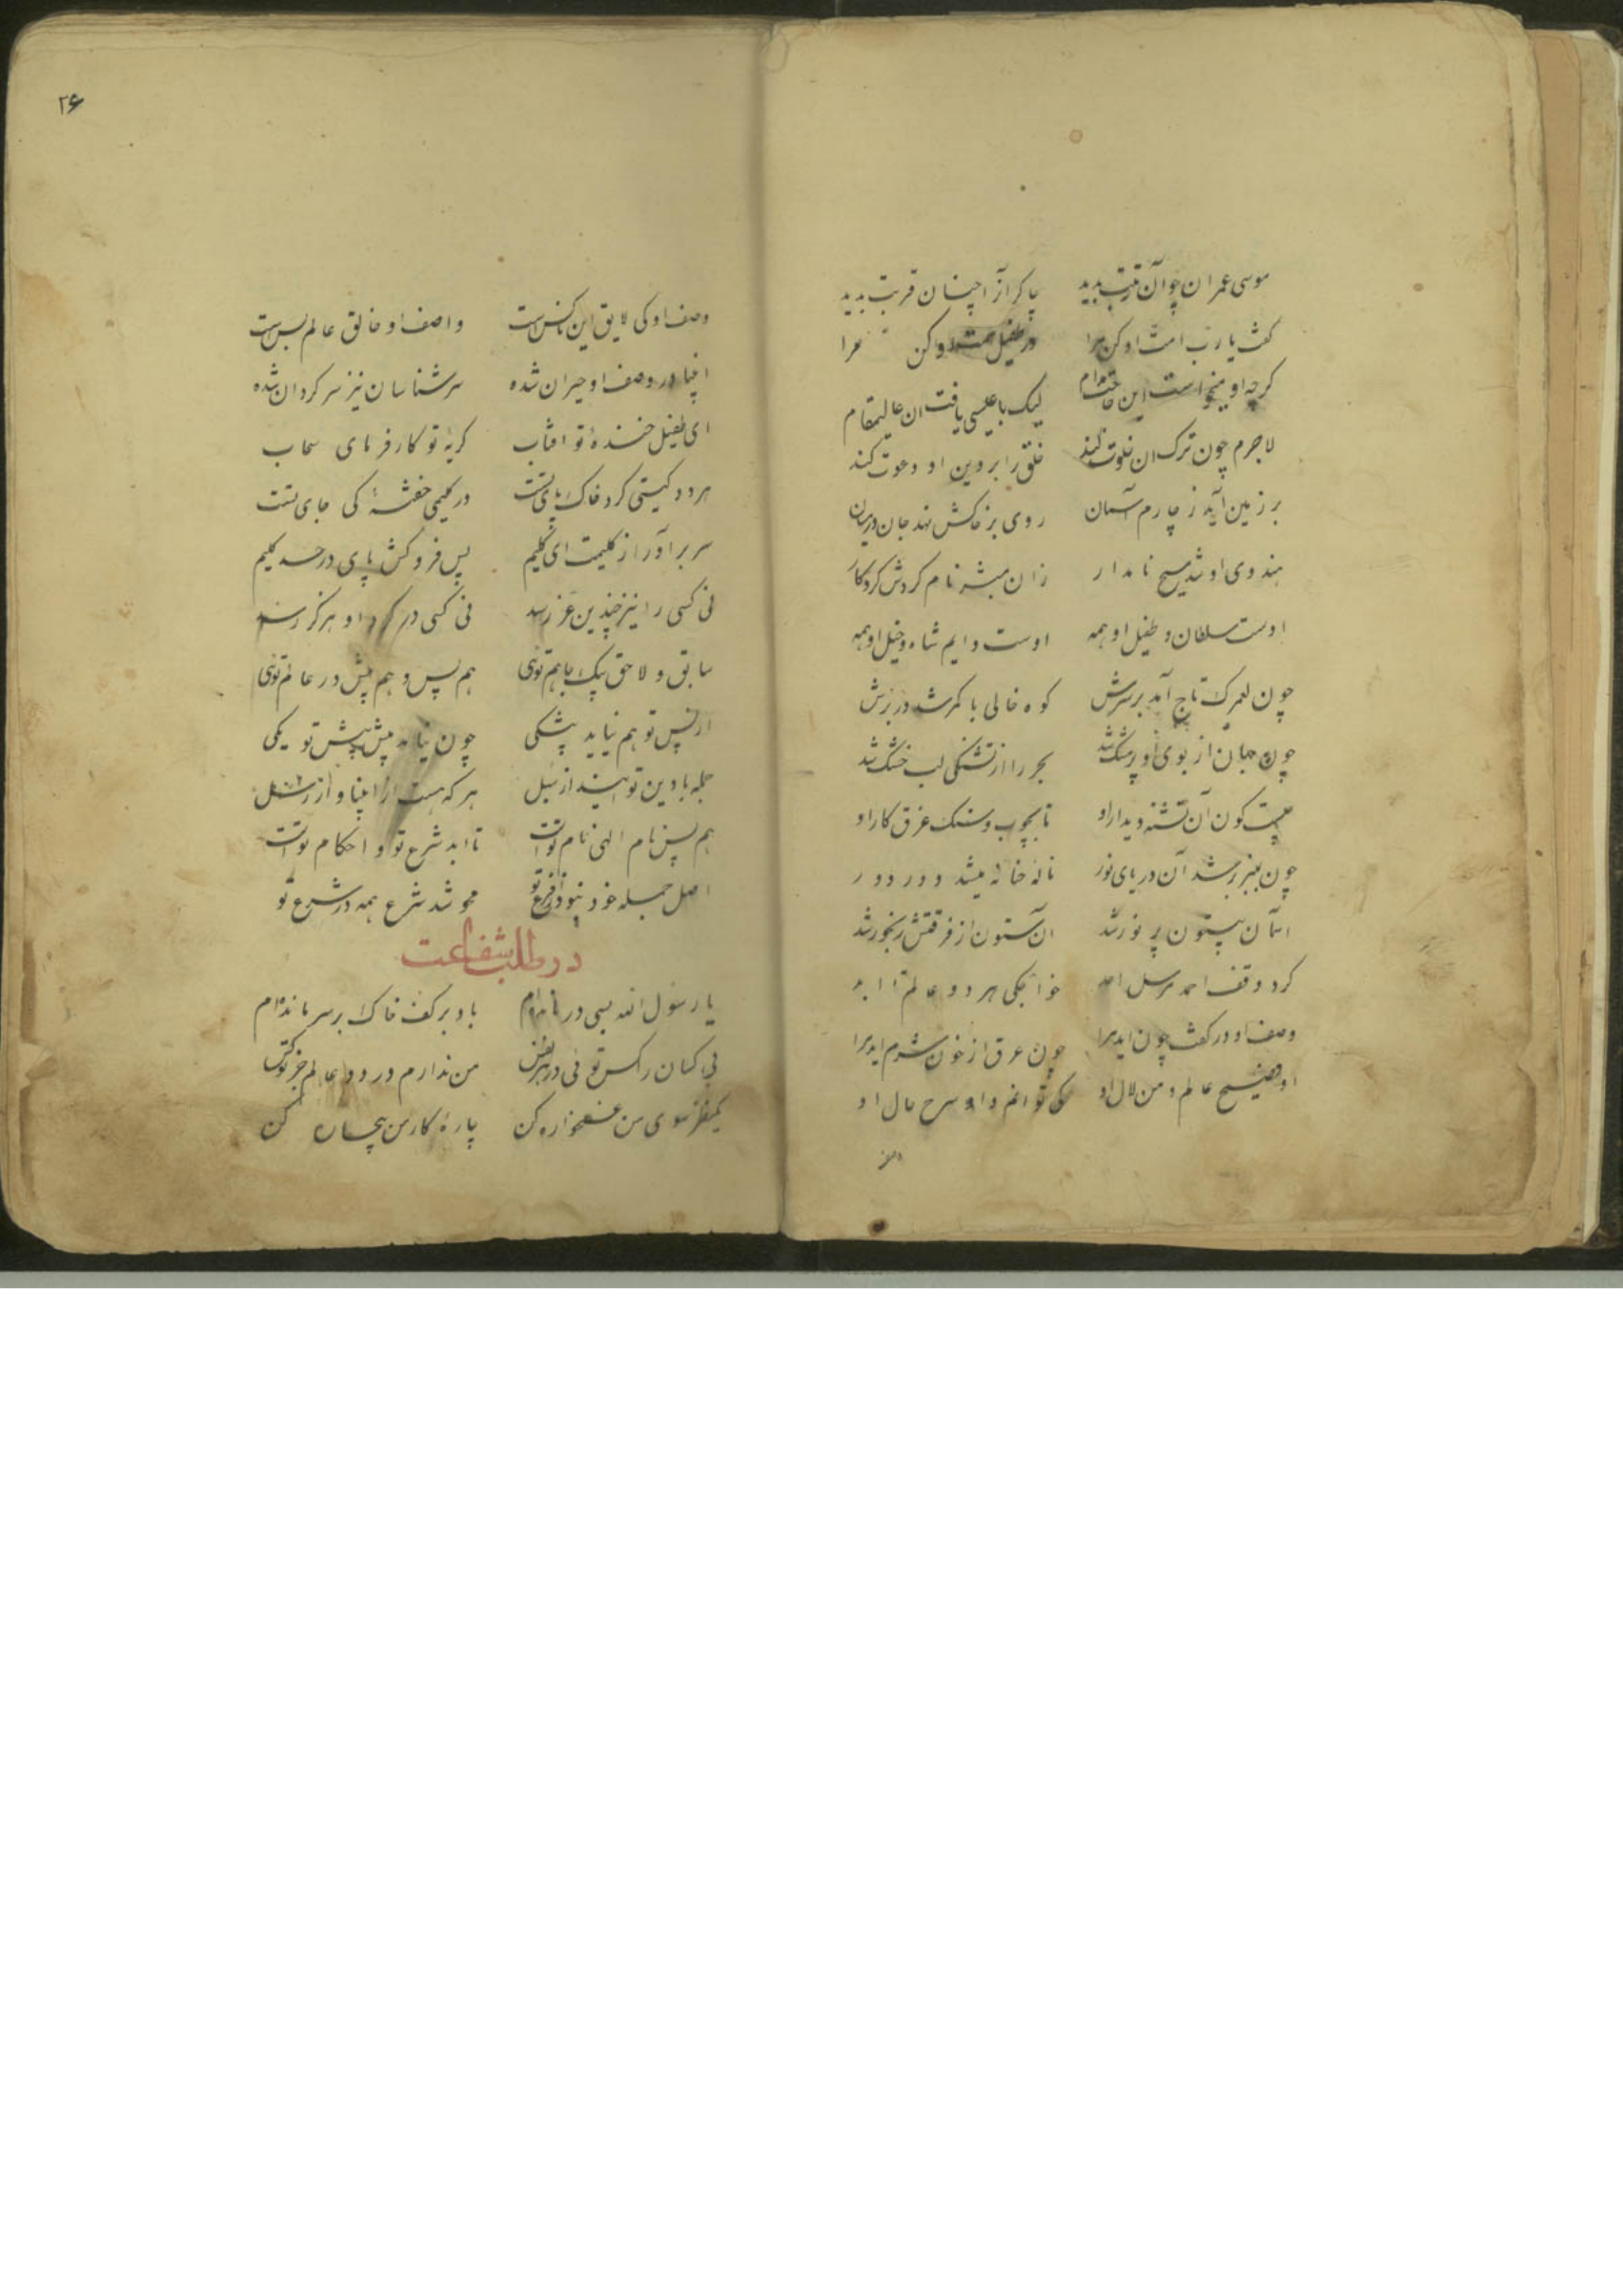 موسی عمران چو آن رتبت بدید چاکر آنرا چنان قربت بدید
گفت یا رب امت او کن مرا در طفیل همت او کن مرا
کرچه او میخواست این حاجت مدام لیک با عیسی یافت ان عالیمقام
لاجرم چون ترک ان خلوت کند خلق را بر دین او دعوت کند
بر زمین آید ز چارم آسمان روی بر خاکش نهد جان در میان
هندوی او شد مسیح نامدار زان مبشر نام کردش کردکار
اوست سلطان و طفیل او همه اوست دایم شاه و خیل او همه
چون لعمرک تاج آمد بر سرش کوه خالی با کمر شد در برش
چون جهان از بوی او پر مشک شد بحر را از تشنگی لب خشک شد
کیست کون آن تشنه دیدار او تا بچوب و سنک غرق کار او
چون بمنبر بر شد آن دریای نور ناله حنانه میشد دور دور
اسمان بیستون پر نور شد ان ستون از فرقتش رنجور شد
کرد وقف احمد مرسل احد خواجکی هر دو عالم تا ابد
وصف او در کفت چون اید مرا چون عرق از خون شرم اید مرا
او فصیح عالم و من لال او کی توانم داد شرح حال او
وصف
۲۶
وصف او کی لایق این ناکس است واصف او خالق عالم بس است
انبیا در وصف او حیران شده سرشناسان نیز سرکردان شده
ای طفیل خندهٔ تو افتاب کریهٔ تو کارفرمای سحاب
هر دو کیتی کرد خاک پای تست در کلیمی خفتهٔ کی جای تست
سر برآور از کلیمت ای کلیم پس فروکش پای در حد کلیم
نی کسی را نیز چندین عز رسد نی کسی در کرد او هرکز رسد
سابق و لاحق بیک جا هم توی هم پس و هم پیش در عالم توی
از پس تو هم نیاید پیشکی چون نیامد پیش پیش تو یکی
جمله با دین تو ایند از سبل هر که هست از انبیا و از رسل
هم پس نام الهی نام تست تا ابد شرع تو و احکام تست
اصل جمله خود نبود فرع تو محو شد شرع همه در شرع تو
در طلب شفاعت
یا رسول الله بسی درمانده‌ام باد بر کف خاک بر سر مانده‌ام
بی کسان را کس توی در هر نفس من ندارم در دو عالم جز تو کس
یکنظر سوی من غمخواره کن چارهٔ کار من بیچاره کن